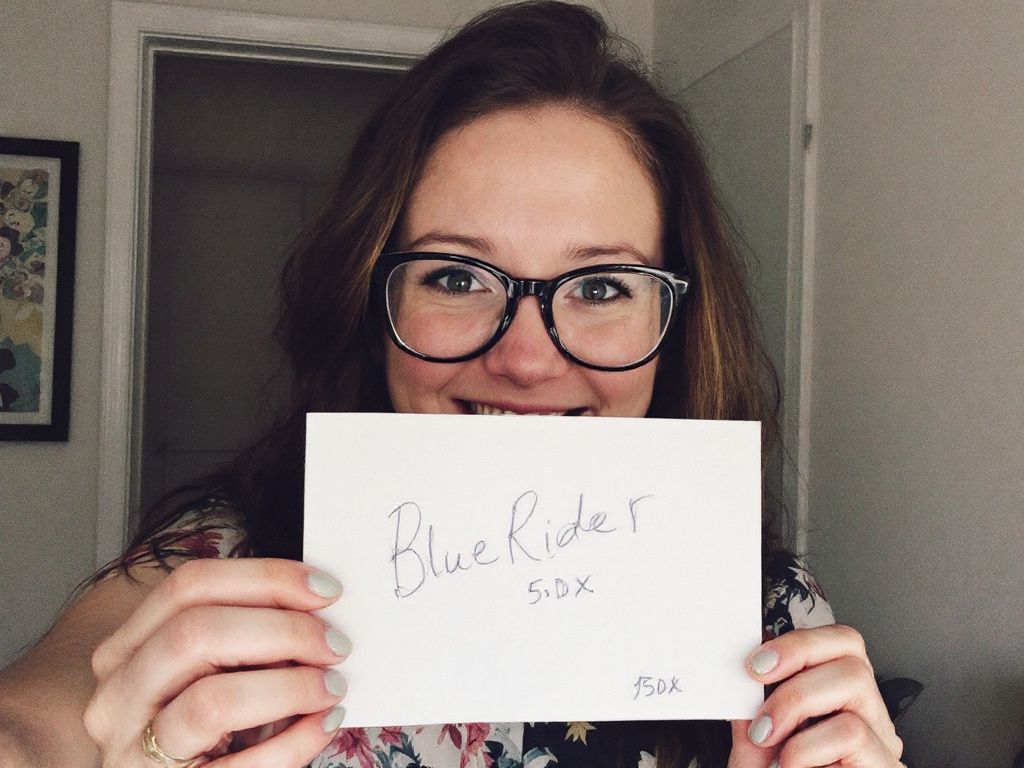 BlueRider
5.DX
15DX